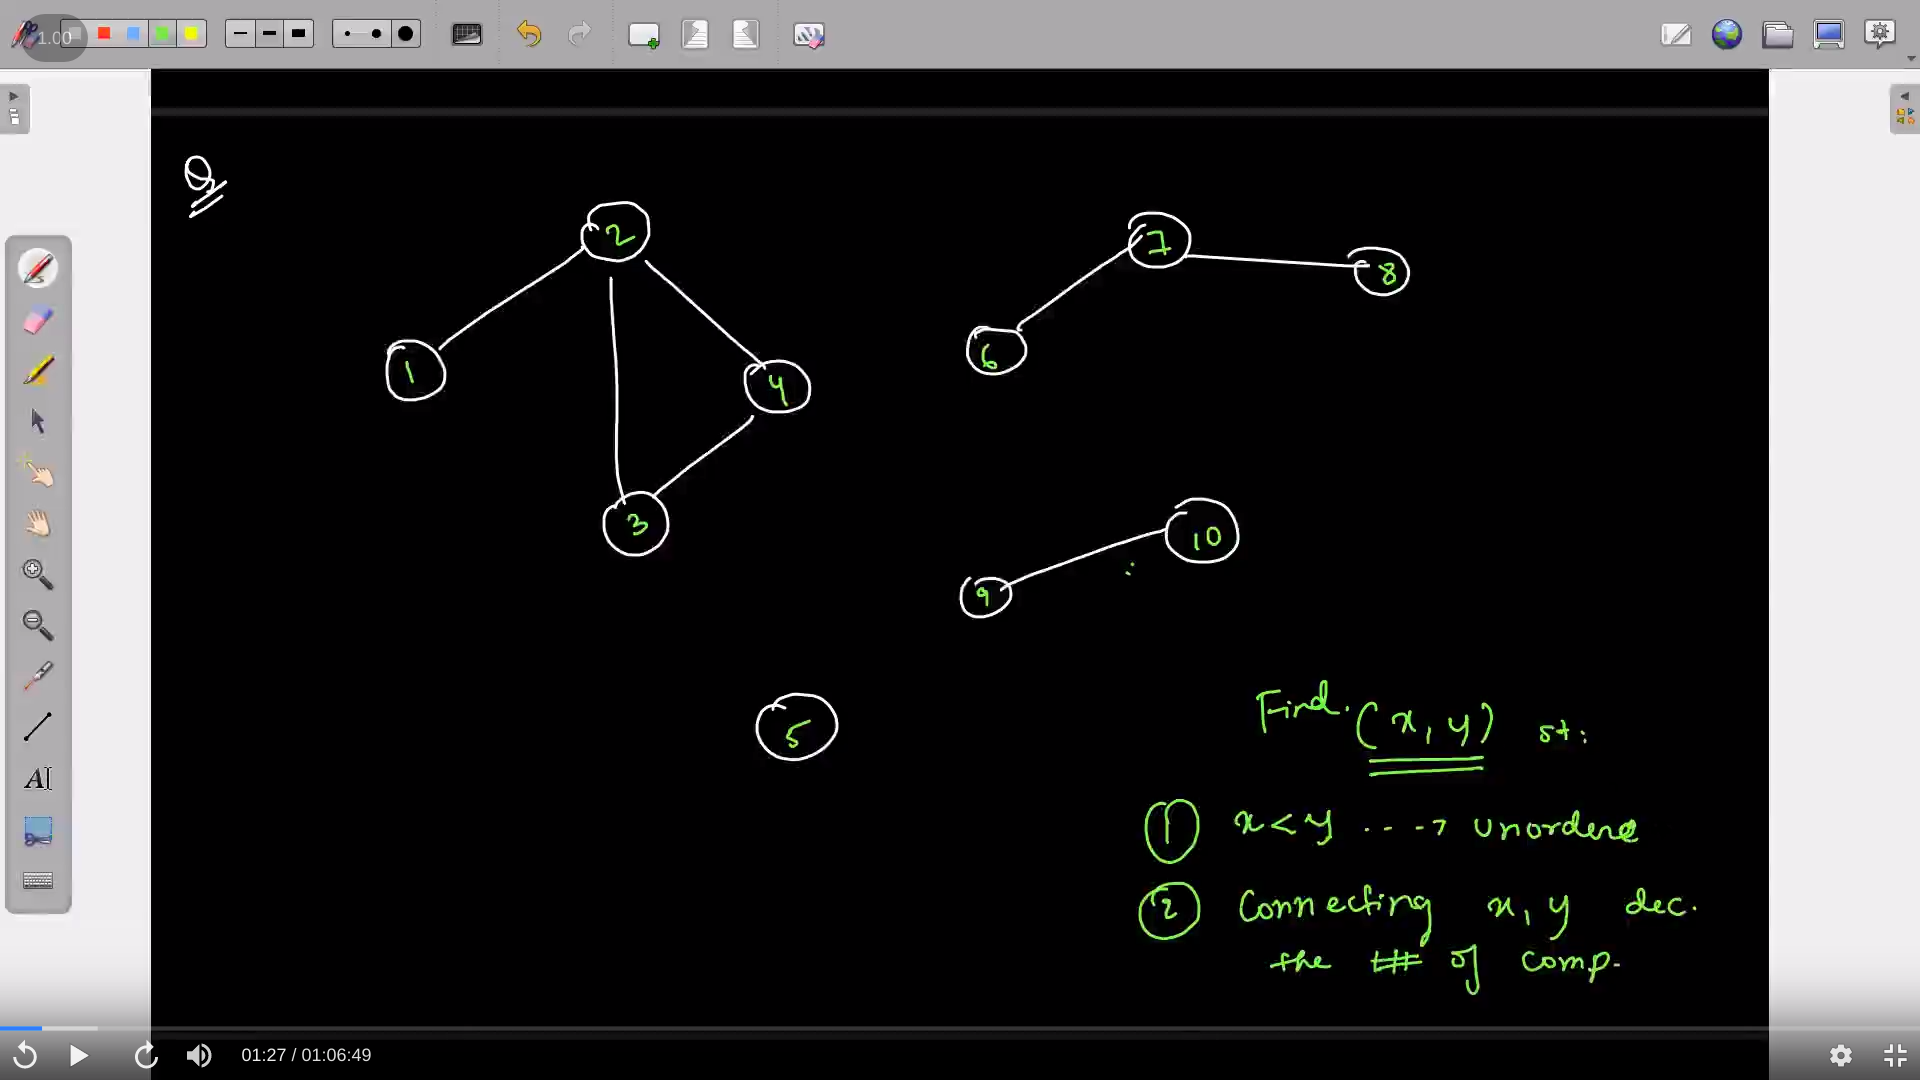 1.00
Q
2
7
8
1
6
4
3
10
9
5
Find. (x, y) st:
1 x < y ---→ unordere
2 Connecting x, y dec.
the # of comp.
AI
01:27 / 01:06:49